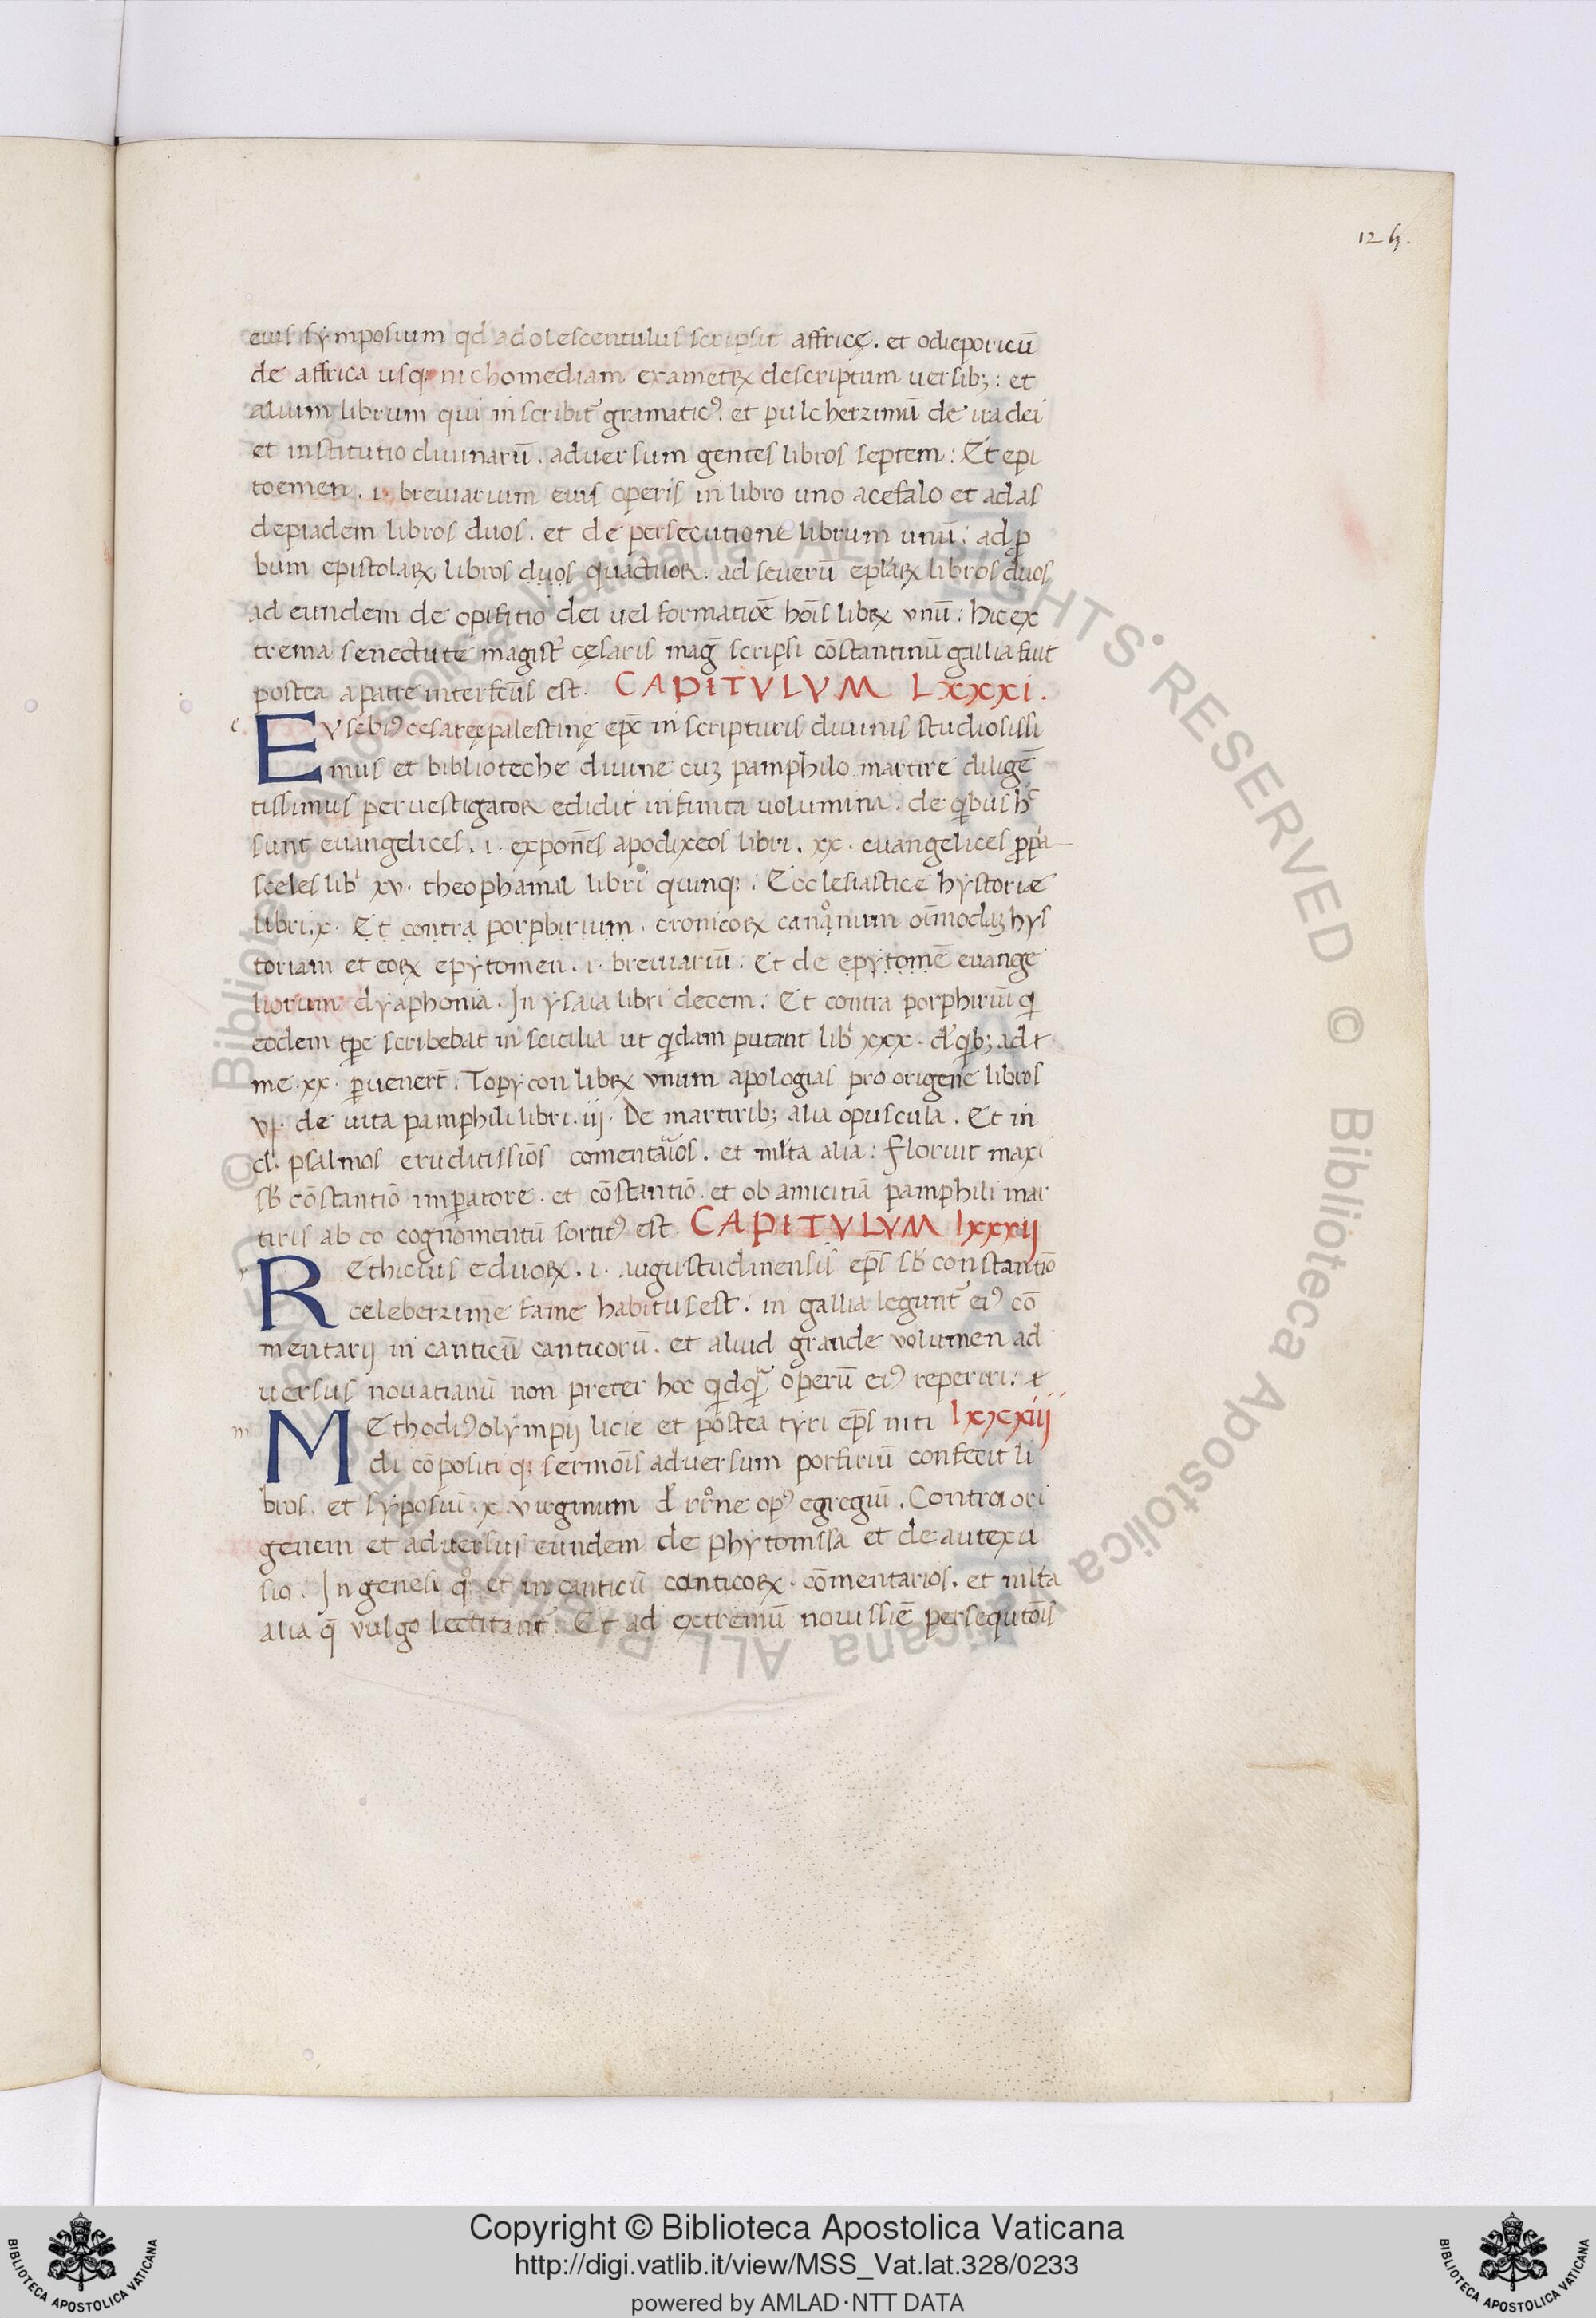 124.
euis sỳmposium qd adolescentulus scripsit affricę. et odieporicū
de affrica usqꝫ nichomediam exametꝝ descriptum uersibꝫ: et
alium librum qui inscribit᷑ gramaticꝰ. et pulcherzimū de ira dei
et institutio diuinarū. aduersum gentes libros septem: Et epi
toemen. i. breuiarium euis operis in libro uno acefalo et ad as
depiadem libros duos. et de persecutione librum unū: ad ꝓ
bum epistolaꝝ libros duos quactuoꝝ. ad seuerū ep̄laꝝ libros duos
ad eundem de opifitio dei uel formatiōē hōis libꝝ vnū: hic ex
trema senectute magist᷑ cęsaris mag̅ scripsi cōstantinū gallia fuit
postea a patre interfcūs est. CAPITVLVM LXXXI.
e
EVsebiꝰ cesaręę palestinę ep̄c in scripturis diuinis studiosissi
mus et biblioteche diuine cuꝫ pamphilo martire diligē
tissimus peruestigator edidit infinita uolumina. de qibus hc̄
sunt euangelices. i. exponēs apodixeos libri. xx. euangelices p̄pa
sceles lib̄ xv. theophamal libri quinqꝫ: Ecclesiastice hystoriæ
libri x. Et contra porphirium. cronicoꝝ canonum oīmodaꝫ hys
toriam et eoꝝ epỳtomen. i. breuiariū. Et de epỳtomē euange
liorum dyaphonia. In ỳsaia libri decem: Et contra porphiriū q
eodem tp̄e scribebat in scicilia ut qdam putant lib̄ xxx. d̄ qbꝫ ad t
me xx. ꝑuenert̄. Topỳcon libꝝ vnum apologias pro origene libros
vj. de uita pamphili libri. iij. De martiribꝫ alia opuscula. Et in
cl. psalmos eruditissiōs comentaios. et mlta alia: Floruit maxi
sb̄ cōstantiō imꝑatore. et cōstantiō. et ob amicitiā pamphili mar
tiris ab eo cognomentū sortitꝰ est. CAPITVLVM lxxxii
REthicius eduoꝝ. i. augustudinensis ep̄s sb̄ constantiō
celeberzime fame habitus est. in gallia legunt᷑ eiꝰ cō
mentarij in canticū canticorū. et aliud grande volumen ad
uersus nouatianū non preter hoc qdq operū eiꝰ reperiri. t
m
MEthodiꝰ olỳmpij licie et postea tỳri ep̄s niti lxxxiij
di cōpositi qꝫ sermōis aduersum porfiriū confecit li
bros. et sỳposiū. x. virginum d̄ rr̄one opꝰ egregiū. Contra ori
genem et aduersus eundem de phỳtonissa et de autexu
sio. In genesi qꝫ et in canticū canticoꝝ. cōmentarios. et mlta
alia q̄ vulgo lectitant᷑. Et ad extremū nouissiē persequtōis
Copyright © Biblioteca Apostolica Vaticana
http://digi.vatlib.it/view/MSS_Vat.lat.328/0233
powered by AMLAD·NTT DATA
BIBLIOTECA APOSTOLICA VATICANA
BIBLIOTECA APOSTOLICA VATICANA